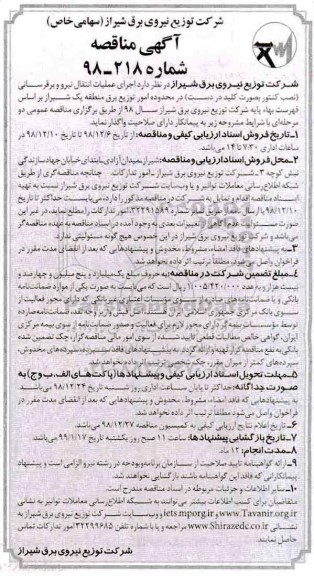 شرکت توزیع نیروی برق شیراز (سهامی خاص)
آگهی مناقصه
شماره ۲۱۸-۹۸
شرکت توزیع نیروی برق شیراز در نظر دارد اجرای عملیات انتقال نیرو و برقرسانی
(نصب کنتور بصورت کلید در دست) در محدوده امور توزیع برق منطقه یک شیراز بر اساس
فهرست بهاء پایه شرکت توزیع نیروی برق شیراز سال ۹۸ از طریق برگزاری مناقصه عمومی دو
مرحله‌ای با شرایط مشروحه زیر به پیمانکار دارای صلاحیت واگذار نماید
۱-تاریخ فروش اسناد ارزیابی کیفی و مناقصه: از تاریخ ۹۸/۱۲/۶ تا تاریخ ۹۸/۱۲/۱۰ در
ساعات اداری ۷:۳۰ تا ۱۴ می باشد.
۲-محل فروش اسناد ارزیابی و مناقصه: شیراز، میدان آزادی، ابتدای خیابان جهاد سازندگی
نبش کوچه ۳ - شرکت توزیع نیروی برق شیراز - امور تدارکات چنانچه مناقصه گری از طریق
شبکه اطلاع رسانی معاملات توانیر و یا وب سایت شرکت توزیع نیروی برق شیراز نسبت به تهیه
اسناد مناقصه اقدام و تمایل به شرکت در مناقصه مذکور را دارد، می بایست حداکثر تا تاریخ
۹۸/۱۲/۱۰ با ارسال نمابر شماره ۳۲۲۹۱۵۸۹ امور تدارکات را مطلع نماید، در غیر این
صورت مسئولیت عدم آگاهی از تغییرات بعدی و بوجود آمده در اسناد مناقصه به عهده مناقصه گر
می باشد و شرکت توزیع نیروی برق شیراز در این خصوص هیچ گونه مسئولیتی ندارد.
۳-به پیشنهادهای فاقد امضاء، مشروط، مخدوش و پیشنهادهایی که بعد از انقضای مدت مقرر در
فراخوان واصل می شود مطلقا ترتیب اثر داده نخواهد شد.
۴-مبلغ تضمین شرکت در مناقصه: به حروف مبلغ یک میلیارد و پنج میلیون و چهارصد و
بیست هزار و به عدد ۱/۰۰۵/۴۲۰/۰۰۰ ریال است که می بایست به صورت یکی از موارد ضمانت نامه
بانکی و یا ضمانت نامه های صادره از سوی مؤسسات اعتباری غیربانکی که دارای مجوز فعالیت از
سوی بانک مرکزی جمهوری اسلامی ایران هستند، اصل فیش واریز وجه نقد، ضمانت نامه صادره
توسط مؤسسات بیمه گر دارای مجوز لازم برای فعالیت و صدور ضمانت نامه از سوی بیمه مرکزی
ایران، گواهی خالص مطالبات قطعی تایید شده از سوی امور مالی مناقصه گزار، چک تضمین شده
بانکی به نفع مناقصه گزار تهیه و ارائه گردد. به پیشنهادهای فاقد سپرده، سپرده های مخدوش،
سپرده های کمتر از میزان مقرر، چک شخصی ترتیب اثر داده نخواهد شد.
۵-مهلت تحویل اسناد ارزیابی کیفی و پیشنهادها (پاکت های الف، ب و ج) به
صورت جداگانه: حداکثر تا پایان ساعت اداری روز شنبه تاریخ ۹۸/۱۲/۲۴ می باشد.
به پیشنهادهایی که فاقد امضاء، مشروط، مخدوش و پیشنهادهایی که بعد از انقضای مدت مقرر در
فراخوان واصل می شود مطلقا ترتیب اثر داده نخواهد شد.
۶-تاریخ اعلام نتایج ارزیابی کیفی به کمیسیون مناقصه ۹۸/۱۲/۲۷ می باشد.
۷-تاریخ بازگشایی پیشنهادها: ساعت ۱۱ صبح روز یکشنبه تاریخ ۹۹/۱/۱۷ می باشد.
۸-مدت انجام: ۱۲ ماه
۹-ارائه گواهینامه تایید صلاحیت از سازمان برنامه و بودجه در رشته نیرو الزامی است و پیشنهاد
پیمانکارانی که فاقد این گواهینامه باشند بازگشایی نخواهند شد.
۱۰-سایر اطلاعات و جزئیات مربوطه در اسناد مناقصه مندرج است.
متقاضیان برای کسب اطلاعات بیشتر می توانند به شبکه اطلاع رسانی معاملات توانیر به نشانی
www.Tavanir.org.ir و iets.mporg.ir و وب سایت شرکت توزیع نیروی برق شیراز به
نشانی www.Shirazedc.co.ir مراجعه و یا با شماره تلفن ۳۲۲۹۹۶۸۵ امور تدارکات تماس
حاصل نمایند.
شرکت توزیع نیروی برق شیراز